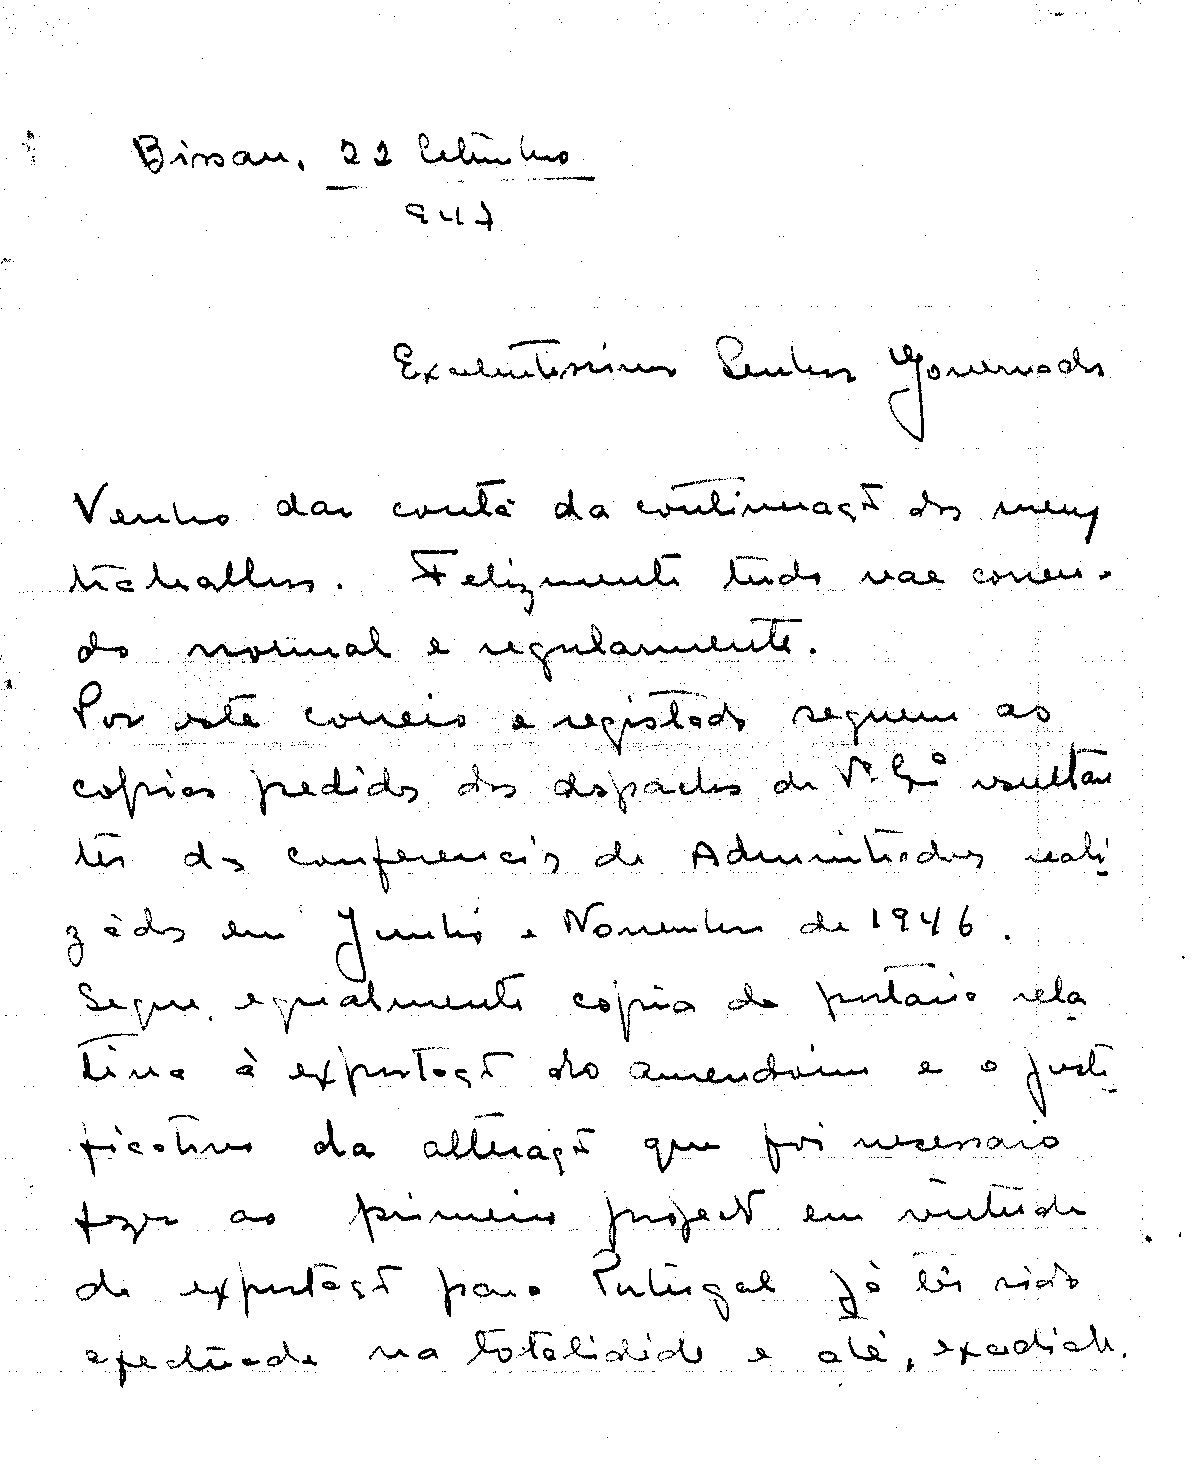 Bissau, 22 Setembro
947
Excelentissimo Senhor Governador
Venho dar conta da continuação dos meus
trabalhos. Felizmente tudo vae corren-
do normal e regularmente.
Por este correio e registado seguem as
copias pedidas dos despachos de V. Exª resultan
tes das conferencias de Administradores reali-
zadas em Junho e Novembro de 1946.
Segue, egualmente copia da portaria rela-
tiva à exportação do amendoim e o justi-
ficativo da alteração que foi necessario
fazer ao primeiro projecto em virtude
da exportação para Portugal já ter sido
efectuada na totalidade e até, excedida.